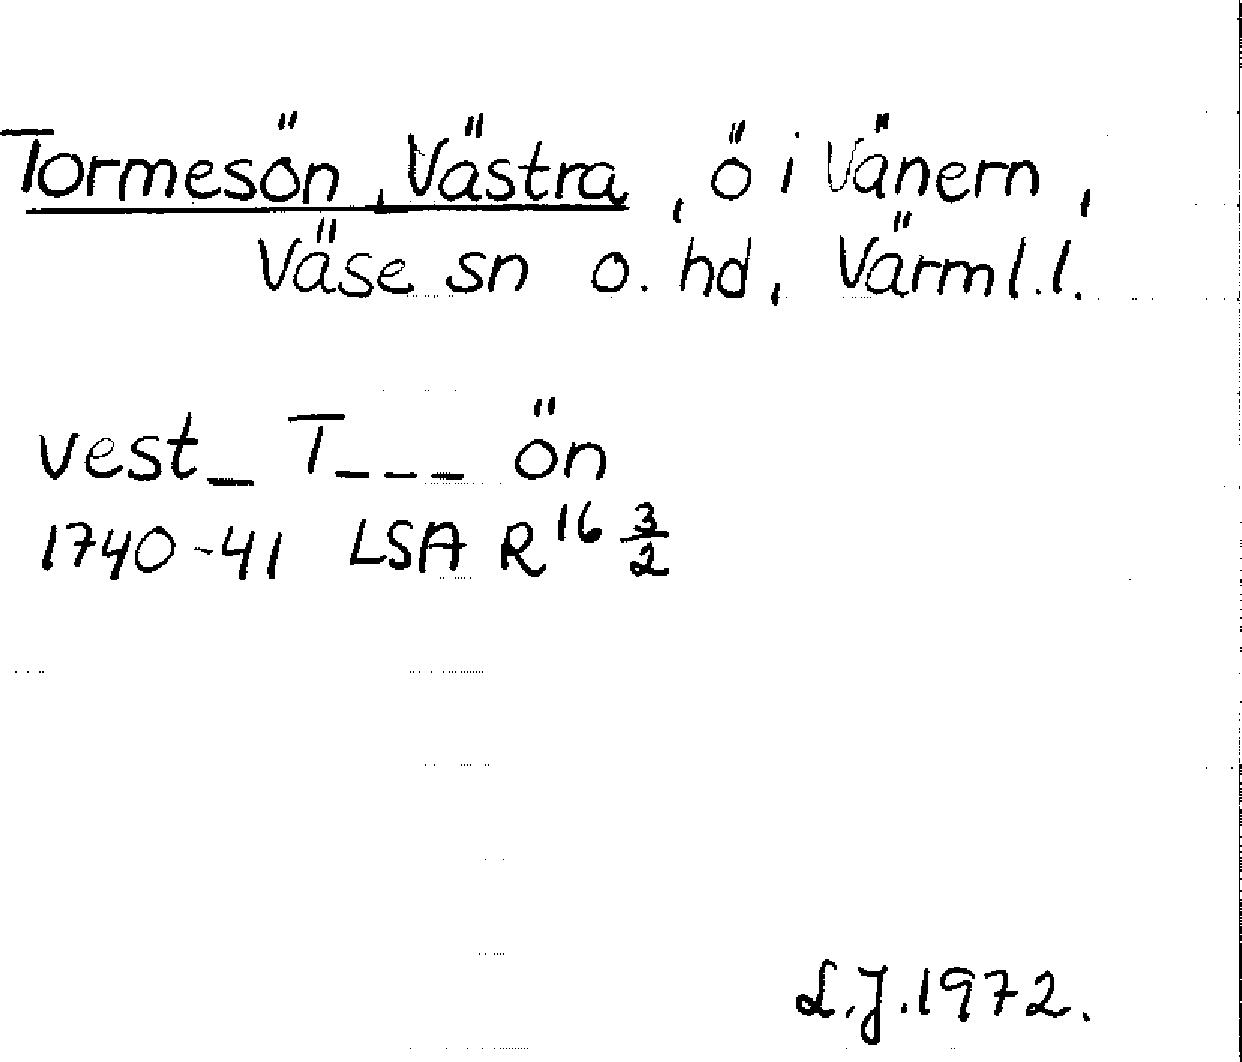 Tormesön, Västra, ö i Vänern,
Väse sn o. hd, Värml.l.
vest_ T___ ön
1740-41 LSA R 16 3/2
L.J.1972.